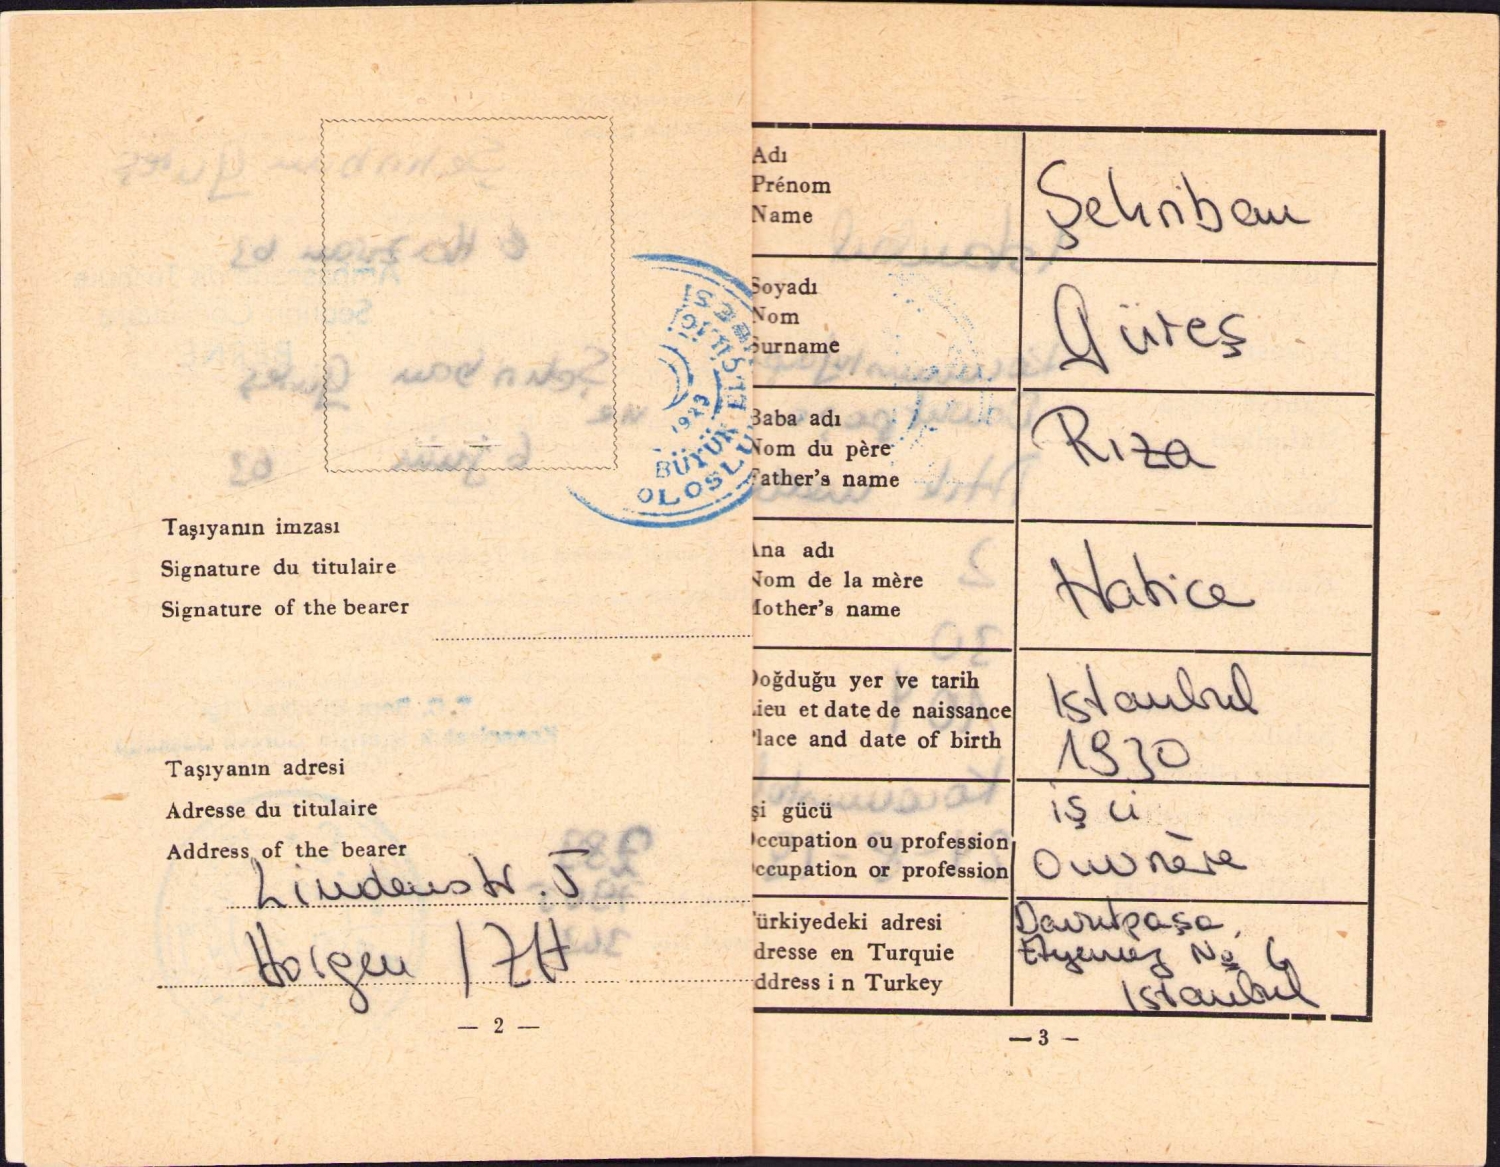 Taşıyanın imzası
Signature du titulaire
Signature of the bearer
Taşıyanın adresi
Adresse du titulaire
Address of the bearer
Lindenstr. 5
Horgen / ZH
— 2 —
1923
BÜYÜK EL
OLOSLU
Adı
Prénom
Name
Şehriban
Soyadı
Nom
Surname
Güreş
Baba adı
Nom du père
Father's name
Rıza
Ana adı
Nom de la mère
Mother's name
Hatice
Doğduğu yer ve tarih
Lieu et date de naissance
Place and date of birth
Istanbul
1930
şi gücü
Occupation ou profession
Occupation or profession
işçi
Ouvrière
Türkiyedeki adresi
Adresse en Turquie
Address i n Turkey
Davutpaşa,
Etyemez No 6
Istanbul
— 3 —